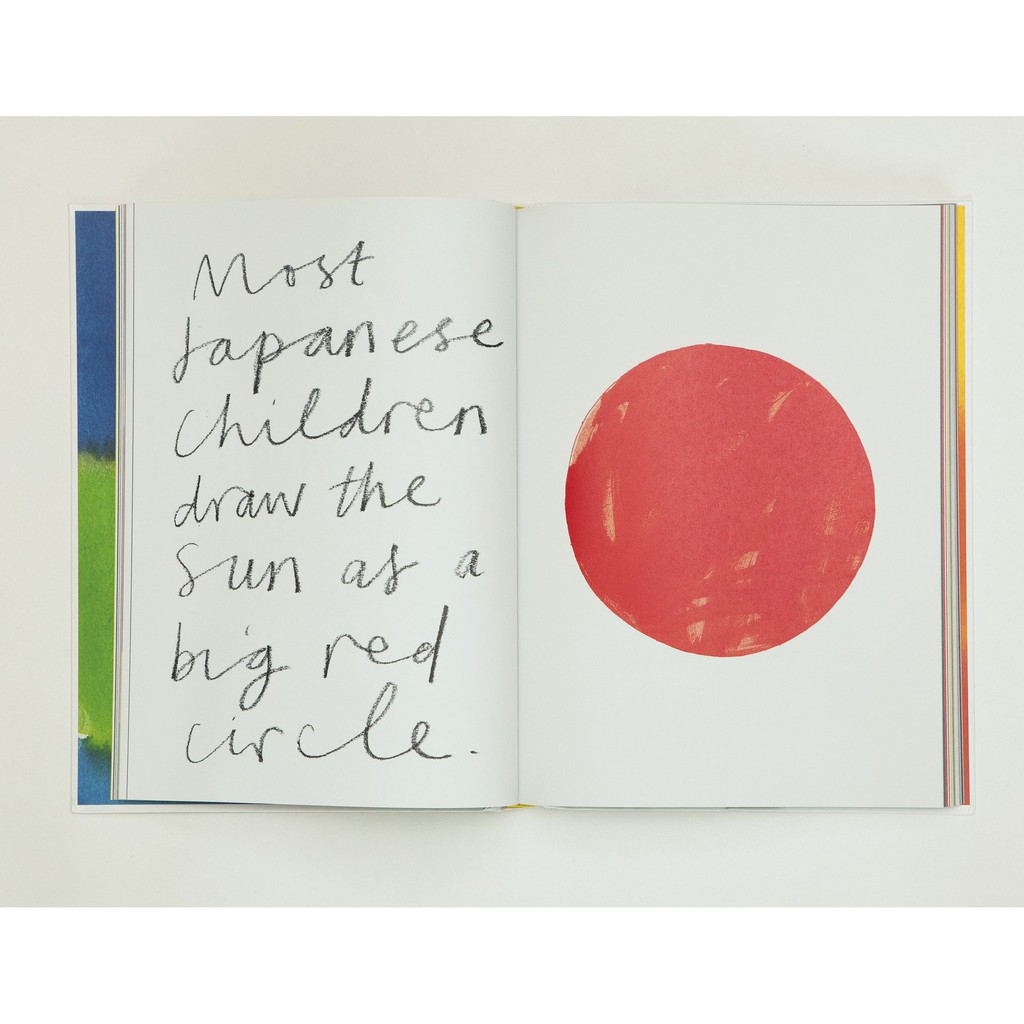 Most
Japanese
children
draw the
sun as a
big red
circle.